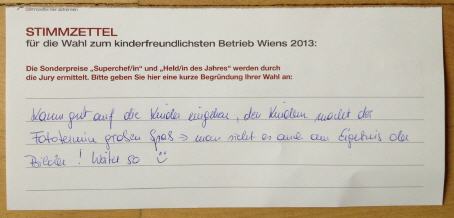 STIMMZETTEL
für die Wahl zum kinderfreundlichsten Betrieb Wiens 2013:
Die Sonderpreise „Superchef/in“ und „Held/in des Jahres“ werden durch
die Jury ermittelt. Bitte geben Sie hier eine kurze Begründung Ihrer Wahl an:
Kann gut auf die Kinder eingehen, den Kindern macht der
Fototermin großen Spaß → man sieht es auch am Ergebnis der
Bilder! Weiter so ☺